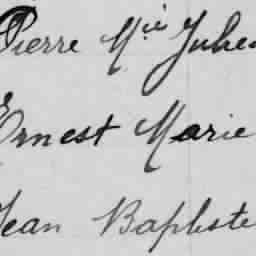 Pierre Mie Julien
Ernest Marie
Jean Baptiste